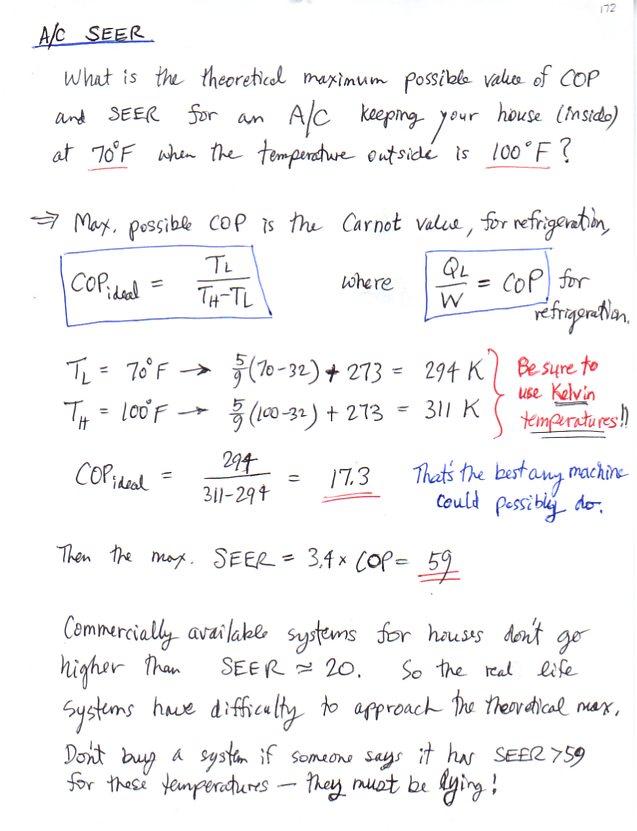 172
A/C SEER
What is the theoretical maximum possible value of COP
and SEER for an A/C keeping your house (inside)
at 70°F when the temperature outside is 100°F?
⇒ Max. possible COP is the Carnot value, for refrigeration,
COP ideal = TL / TH-TL where QL / W = COP for refrigeration.
TL = 70°F → 5/9 (70-32) + 273 = 294 K
TH = 100°F → 5/9 (100-32) + 273 = 311 K
Be sure to
use Kelvin
temperatures!!
COP ideal = 294 / 311-294 = 17.3
That's the best any machine
could possibly do.
Then the max. SEER = 3.4 × COP = 59
Commercially available systems for houses don't go
higher than SEER ≃ 20. So the real life
systems have difficulty to approach the theoretical max.
Don't buy a system if someone says it has SEER > 59
for these temperatures — they must be lying!